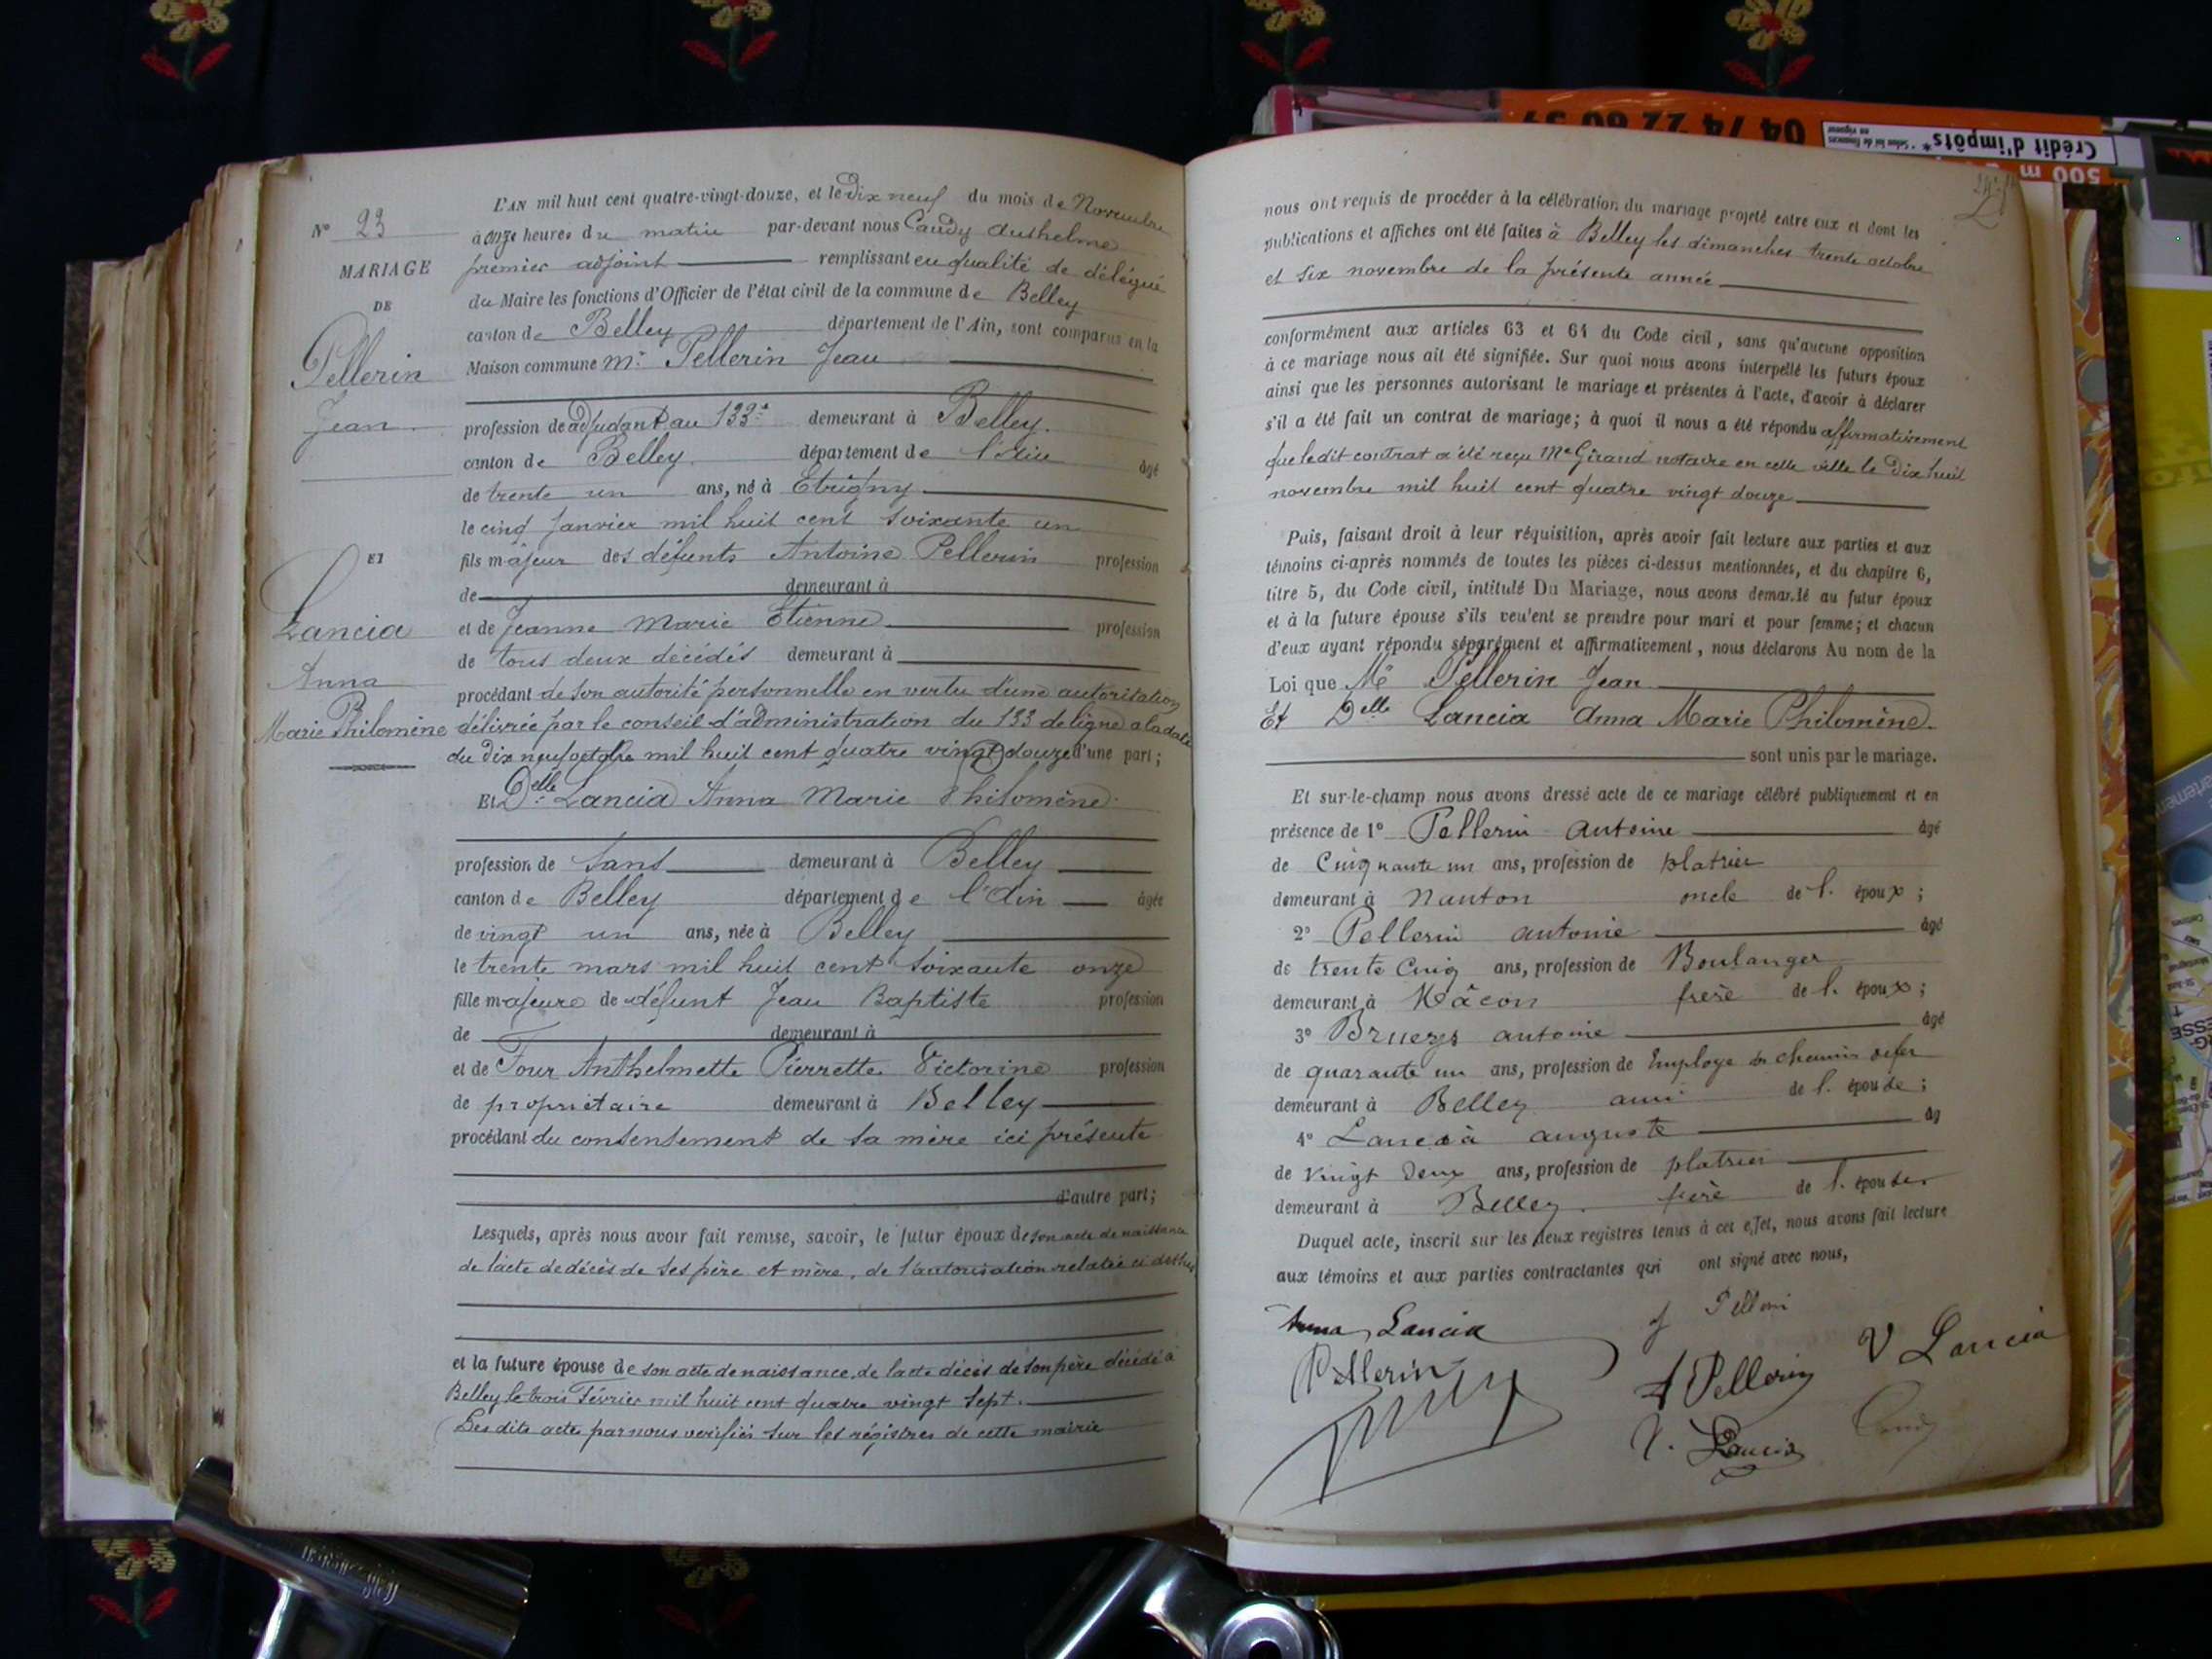 N° 23
MARIAGE
DE
Pellerin
Jean
ET
Lancia
Anna
Marie Philomène
L'AN mil huit cent quatre-vingt-douze, et le Dix neuf du mois de Novembre
à onze heures du matin par-devant nous Caudy Anthelme
premier adjoint remplissant en qualité de délégué
du Maire les fonctions d'Officier de l'état civil de la commune de Belley
canton de Belley département de l'Ain, sont comparus en la
Maison commune Mr Pellerin Jean
profession de adjudant au 133e demeurant à Belley.
canton de Belley département de l'Ain âgé
de trente un ans, né à Etrigny
le cinq Janvier mil huit cent soixante un
fils majeur des défunts Antoine Pellerin profession
de demeurant à
et de Jeanne Marie Etienne profession
de tous deux décédés demeurant à
procédant de son autorité personnelle en vertu d'une autorisation
délivrée par le conseil d'administration du 133 de ligne a la date
du dix neuf octobre mil huit cent quatre vingt douze d'une part;
Et Delle Lancia Anna Marie Philomène
profession de sans demeurant à Belley
canton de Belley département de l'Ain âgée
de vingt un ans, née à Belley
le trente mars mil huit cent soixante onze
fille majeure de défunt Jean Baptiste profession
de demeurant à
et de Four Anthelmette Pierrette Victorine profession
de propriétaire demeurant à Belley
procédant du consentement de sa mère ici présente
d'autre part;
Lesquels, après nous avoir fait remise, savoir, le futur époux de son acte de naissance
de l'acte de décès de ses père et mère, de l'autorisation relatée ci dessus
et la future épouse de son acte de naissance, de l'acte décès de son père décédé à
Belley le trois Février mil huit cent quatre vingt sept.
Les dits actes par nous verifiés sur les régistres de cette mairie
nous ont requis de procéder à la célébration du mariage projeté entre eux et dont les
publications et affiches ont été faites à Belley les dimanches trente octobre
et six novembre de la présente année
conformément aux articles 63 et 64 du Code civil, sans qu'aucune opposition
à ce mariage nous ait été signifiée. Sur quoi nous avons interpellé les futurs époux
ainsi que les personnes autorisant le mariage et présentes à l'acte, d'avoir à déclarer
s'il a été fait un contrat de mariage; à quoi il nous a été répondu affirmativement
que ledit contrat a été reçu Me Girand notaire en cette ville le Dix huit
novembre mil huit cent quatre vingt douze
Puis, faisant droit à leur réquisition, après avoir fait lecture aux parties et aux
témoins ci-après nommés de toutes les pièces ci-dessus mentionnées, et du chapitre 6,
titre 5, du Code civil, intitulé Du Mariage, nous avons demandé au futur époux
et à la future épouse s'ils veulent se prendre pour mari et pour femme; et chacun
d'eux ayant répondu séparément et affirmativement, nous déclarons Au nom de la
Loi que Mr Pellerin Jean
Et Delle Lancia Anna Marie Philomène.
sont unis par le mariage.
Et sur-le-champ nous avons dressé acte de ce mariage célébré publiquement et en
présence de 1° Pellerin Antoine âgé
de Cinquante un ans, profession de platrier
demeurant à Nanton oncle de l. époux;
2° Pellerin antoine âgé
de trente Cinq ans, profession de Boulanger
demeurant à Mâcon frère de l. époux;
3° antoine âgé
de quarante un ans, profession de Employe de chemin de fer
demeurant à Belley ami de l. épouse;
4° Lancia auguste âg
de vingt deux ans, profession de platrier
demeurant à Belley. frère de l. épouse
Duquel acte, inscrit sur les deux registres tenus à cet effet, nous avons fait lecture
aux témoins et aux parties contractantes qui ont signé avec nous,
Anna Lancia
Pellerin
A Pellerin
V Lancia
Lancia
04 74 22 60 59
Crédit d'impôts*
500 m